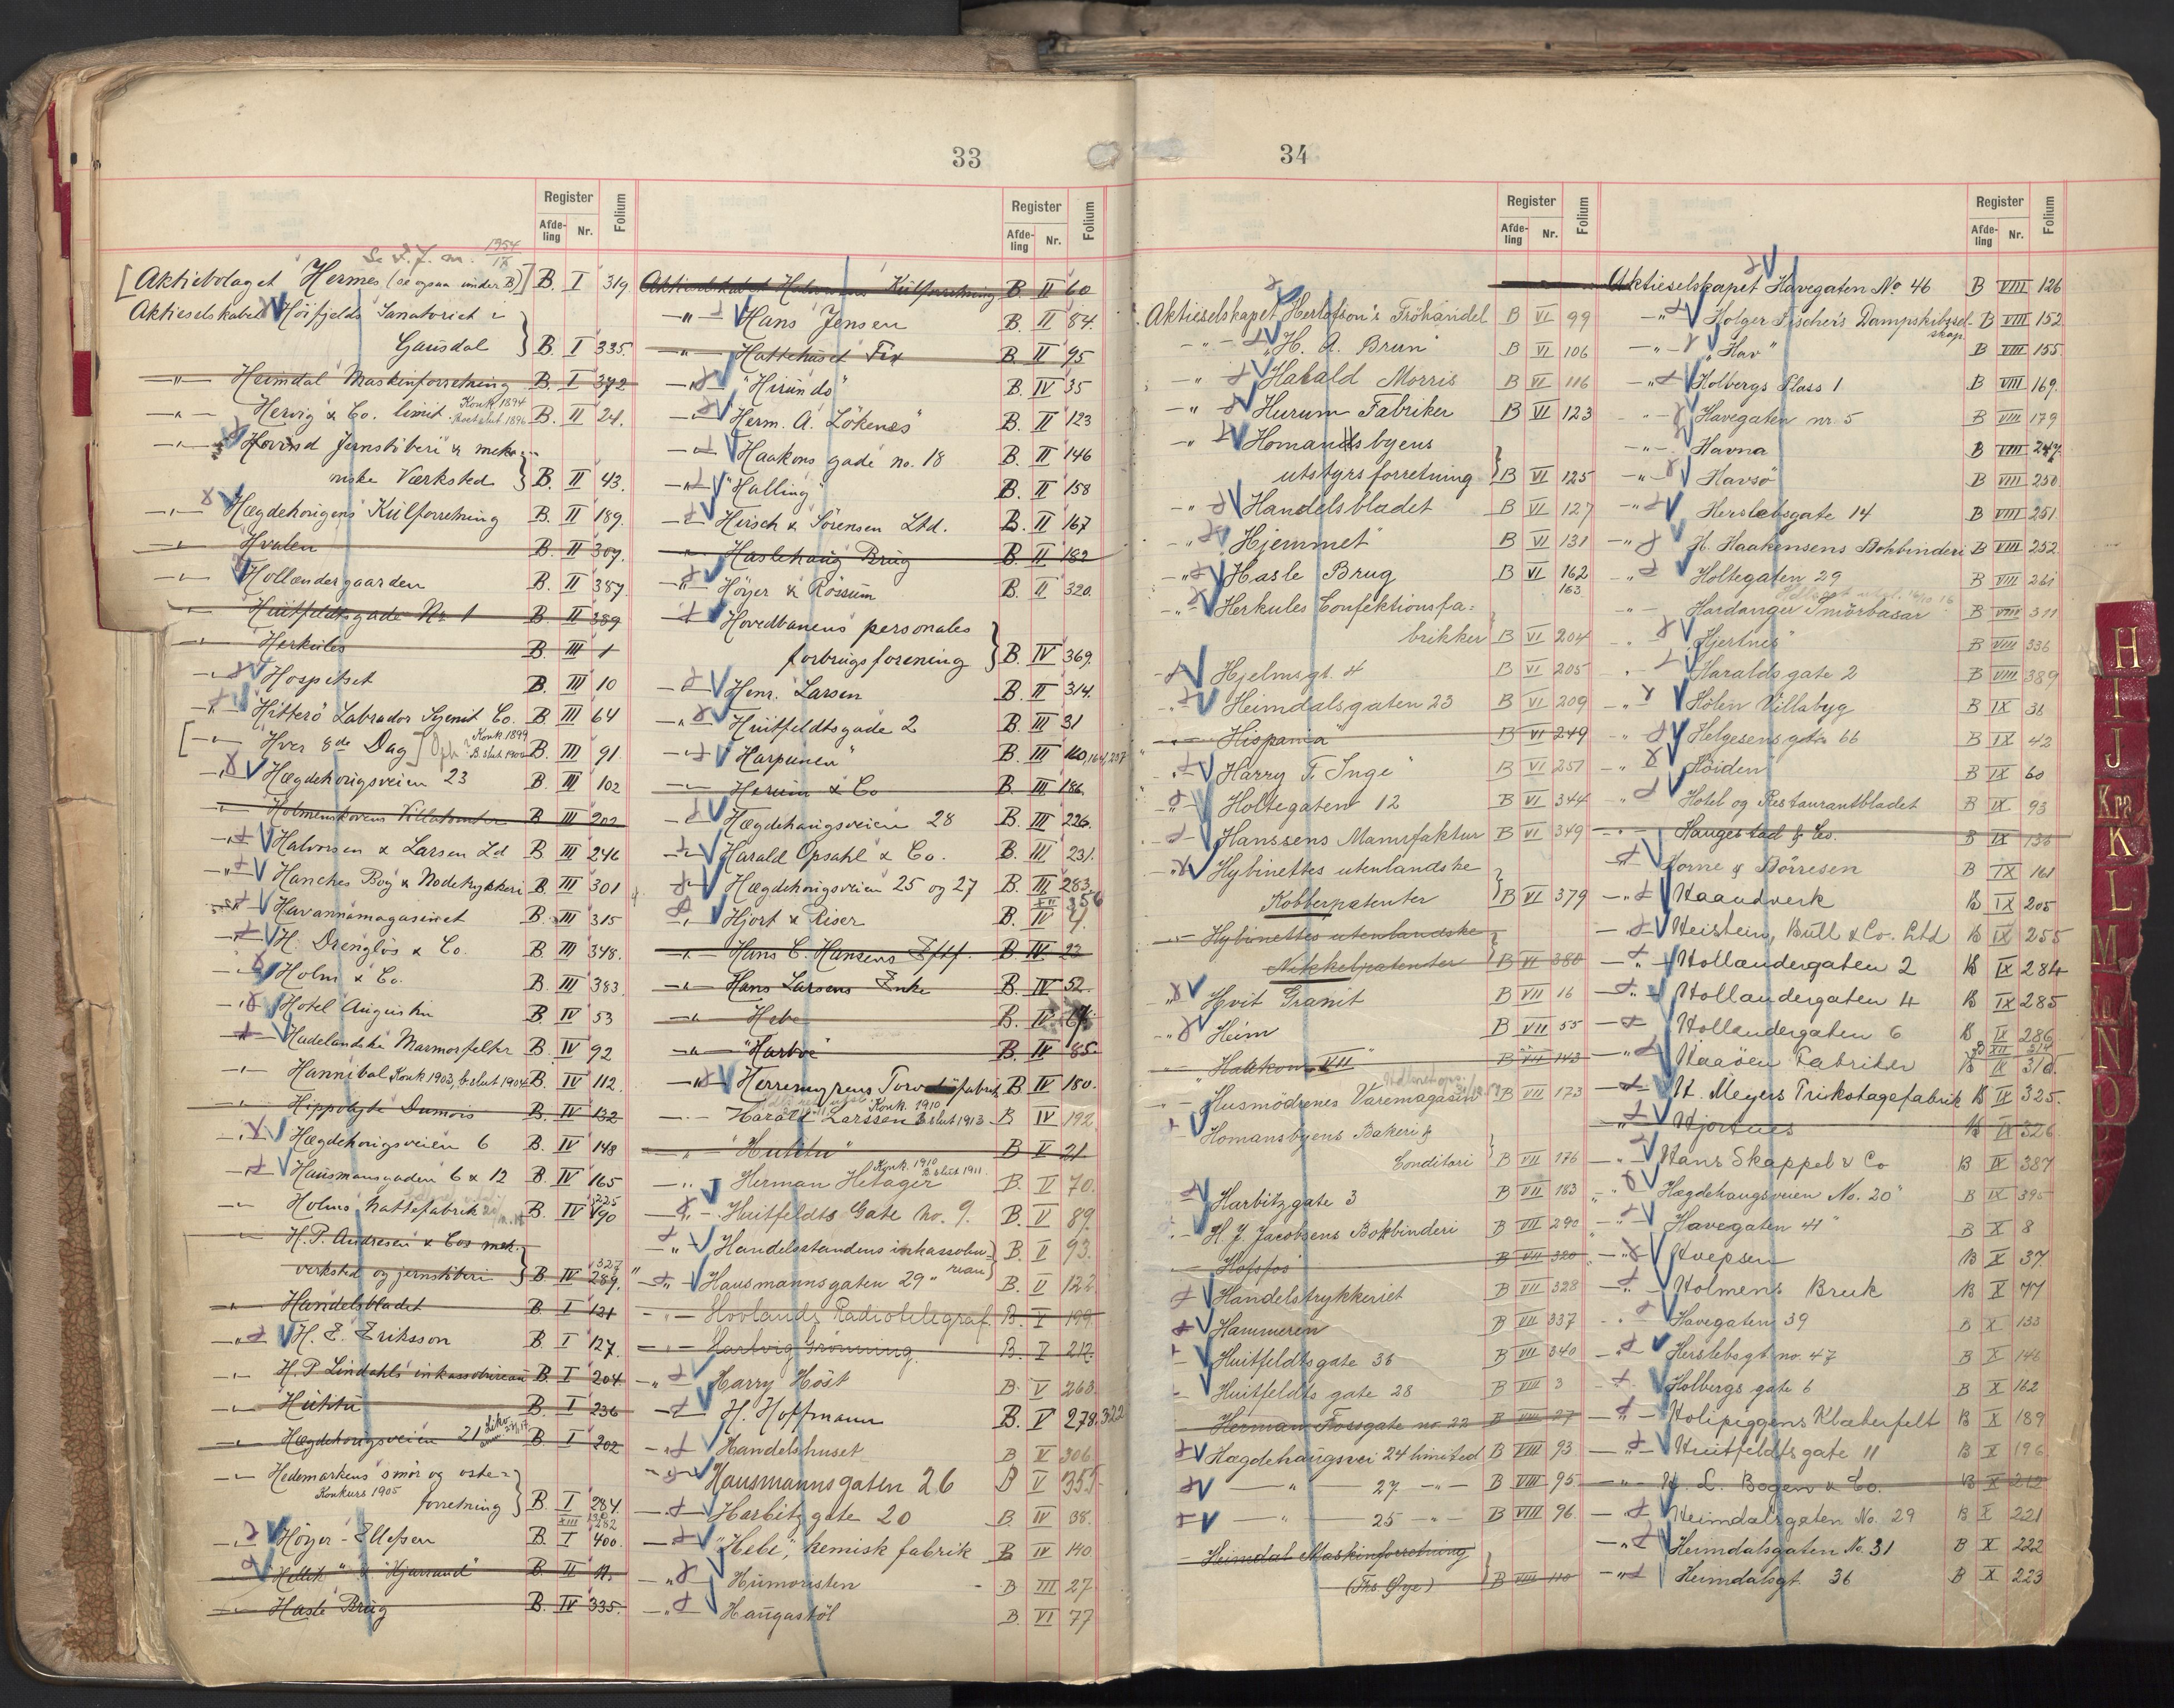 33
Register
Afde-
ling
Nr.
Folium
Register
Afde-
ling
Nr.
Folium
1954
[Aktiebolaget Hermes (se ogsaa under B)] B. I 319.
Aktieselskabet Höifjelds Sanatoriet i
Gausdal } B. I 335.
—"— Heimdal Maskinforretning B. I 372
—"— Hervig & Co. limit. Konk. 1894 B. II 21.
—"— Hovind Jernstöberi & meka-
niske Værksted } B. II 43.
—"— Hægdehougens Kulforretning B. II 189.
—"— Hvalen B. II 307.
—"— Hollændergaarden B. II 387
—"— Huitfeldtsgade Nr. 1 B. II 389
—"— Herkules B. III 1
—"— Hospitset B. III 10
—"— Hitterö Labrador Syenit Co. B. III 64
[—"— Hver 8de Dag] Konk. 1899 B. slut 1900 B. III 91.
—"— Hægdehougsveien 23 B. III 102
—"— Holmenskovens Villatomter B. III 202
—"— Halvorsen & Larsen Ld B. III 246
—"— Hanches Bog & Nodetrykkeri B. III 301
—"— Havannamagasinet B. III 315
—"— H. Drenglös & Co. B. III 348.
—"— Holm & Co. B. III 383.
—"— Hotel Augustin B. IV 53
—"— Hadelandske Marmorfelter B. IV 92
—"— Hannibal Konk. 1903, b. slut 1904 B. IV 112.
—"— Hippolyte Dumois B. IV 132
—"— Hægdehougsveien 6 B. IV 148
—"— Hausmansgaden 6 & 12 B. IV 165
—"— Holms Hattefabrik B. IV 190
H. P. Andresen & Cos mek.
verksted og jernstöberi } B. IV 289.
—"— Handelsbladet B. I 121
—"— H. E. Eriksson B. I 127.
—"— H. P. Lindahls inkassobureau B. I 204
—"— Huhtu B. I 236
—"— Hægdehougsveien 21 B. I 202
—"— Hedemarkens smör og oste-
Konkurs 1905 forretning } B. I 284.
—"— Höyer-Ellefsen B. I 400.
—"— "Hellik" & "Hjarrand" B. II 11.
—"— Hasle Brug B. IV 335.
Aktieselskabet Kulforretning B. II 60
—"— Hans Jensen B. II 84.
—"— Hattehuset Fix B. II 95
—"— "Hirundo" B. IV 35
—"— Herm. A. Lökenes B. II 123
—"— Haakons gade no. 18 B. II 146
—"— "Halling" B. II 158
—"— Hirsch & Sörensen Ltd. B. II 167
—"— Haslehaug Brug B. II 182
—"— Höyer & Rössum B. II 320.
—"— Hovedbanens personales
forbrugsforening } B. IV 369.
—"— Henr. Larsen B. II 314.
—"— Huitfeldtsgade 2 B. III 31
—"— "Harpunen" B. III 160, 164, 257
—"— Herum & Co B. III 186.
—"— Hægdehaugsveien 28 B. III 226.
—"— Harald Opsahl & Co. B. III 231.
—"— Hægdehougsveien 25 og 27 B. III 283.
—"— Hjort & Riser B. IV 4.
—"— Hans C. Hansens Eftf. B. IV 22
—"— Hans Larsens Enke B. IV 52.
—"— Hebe B. IV 67.
—"— "Hartvo" B. IV 85.
—"— Herremyrens Torvströfabrik B. IV 180.
—"— Harald Larssen Konk. 1910 B. slut 1913 B IV 192.
—"— "Huhtu" B V 21
—"— Herman Hetager Konk. 1910 B. slut 1911. B. V 70.
—"— Huitfeldts Gate No. 9. B. V 89.
—"— Handelsstandens inkassobu-
reau } B. V 93.
—"— Hausmannsgaten 29 B. V 122.
—"— Hovlands Radiotelegraf B. V 199.
—"— Hartvig Grönning. B. V 212.
—"— Harry Höst B. V 268.
—"— H. Hoffmann B. V 278, 322
—"— Handelshuset B V 306.
—"— Hausmannsgaten 26 B V 355
—"— Harbitz gate 20 B. IV 38.
—"— "Hebe", kemisk fabrik B IV 140.
—"— Humoristen B III 27
—"— Haugastöl B. VI 77
34
Register
Afde-
ling
Nr.
Folium
Register
Afde-
ling
Nr.
Folium
Aktieselskapet Herlofson's Fröhandel B VI 99
—"— "H. A. Brun" B VI 106
—"— Harald Morris B VI 116
—"— Hurum Fabriker B VI 123
—"— Homansbyens
utstyrsforretning } B VI 125
—"— Handelsbladet B VI 127
—"— "Hjemmet" B VI 131
—"— Hasle Brug B VI 162
163
—"— Herkules Confektionsfa-
brikker B VI 204
—"— Hjelmsgt. 4 B VI 205
—"— Heimdalsgaten 23 B VI 209
—"— Hispania B VI 249
—"— Harry T. Inge B VI 251
—"— Holtegaten 12 B VI 344
—"— Hanssens Manufaktur B VI 349
—"— Hybinettes utenlandske
Kobberpatenter } B VI 379
—"— Hybinettes utenlandske
Nikkelpatenter } B VI 380
—"— Hvit Granit B VII 16
—"— Heim B VII 55
—"— "Haakon VII" B VII 143
—"— Husmödrenes Varemagasin B VII 173
—"— Homansbyens Bakeri &
Conditori } B VII 176
—"— Harbitzgate 3 B VII 183
—"— H. J. Jacobsens Bokbinderi B VII 290
—"— Hofsfos B VII 320
—"— Handelstrykkeriet B VII 328
—"— Hammeren B VII 337
—"— Huitfeldtsgate 36 B VII 340
—"— Huitfeldts gate 28 B VIII 3
—"— Herman Fossgate no. 22 B VIII 27
Hægdehaugsvei 24 limited B VIII 93
—"— 27 —"— B VIII 95
—"— 25 —"— B VIII 96
—"— Heimdal Maskinforretning
(Ths. Øye) } B VIII 110
Aktieselskapet Havegaten No 46 B VIII 126
—"— Holger Fischer's Dampskibssel-
skap B VIII 152.
—"— "Hav" B VIII 155.
—"— Holbergs Plass 1 B VIII 169.
—"— Havegaten nr. 5 B VIII 179
—"— Havna B VIII 247.
—"— Havsö B VIII 250.
—"— Herslebsgate 14 B VIII 251
—"— H. Haakensens Bokbinderi B VIII 252.
—"— Holtegaten 29 B VIII 261
—"— Hardanger Smörbasar B VIII 311
—"— "Hjertnes" B VIII 336
—"— Haralds gate 2 B VIII 389
—"— Holen Villabyg B IX 36
—"— Helgesens gate 66 B IX 42
—"— "Höiden" B IX 60
—"— Hotel og Restaurantbladet B IX 93
—"— Haugestad & Co. B IX 136
—"— Horne & Börresen B IX 161
—"— Haandverk B IX 205
—"— Heistein, Bull & Co. Ltd B IX 255
—"— Hollændergaten 2 B IX 284
—"— Hollændergaten 4 B IX 285
—"— Hollændergaten 6 B IX 286
—"— Haaöen Fabriker B IX 310.
—"— H. Meyers Trikotagefabrik B IX 325.
—"— Hjortnes B IX 326
—"— Hans Skappel & Co B IX 387
—"— Hægdehaugsveien No. 20 B IX 395
—"— Havegaten 41 B X 8
—"— Hvepsen B X 37.
—"— Holmens Bruk B X 77
—"— Havegaten 39 B X 133
—"— Herslebsgt. no. 47 B X 146
—"— Holbergs gate 6 B X 162
—"— Holipiggens Klæberfelt B X 189
—"— Huitfeldts gate 11 B X 196
—"— H. L. Bogen & Co. B X 212
—"— Heimdalsgaten No. 29 B X 221
—"— Heimdalsgaten No. 31 B X 222
—"— Heimdalsgt. 36 B X 223
H
I
J
Kra
K
L
M
N
O